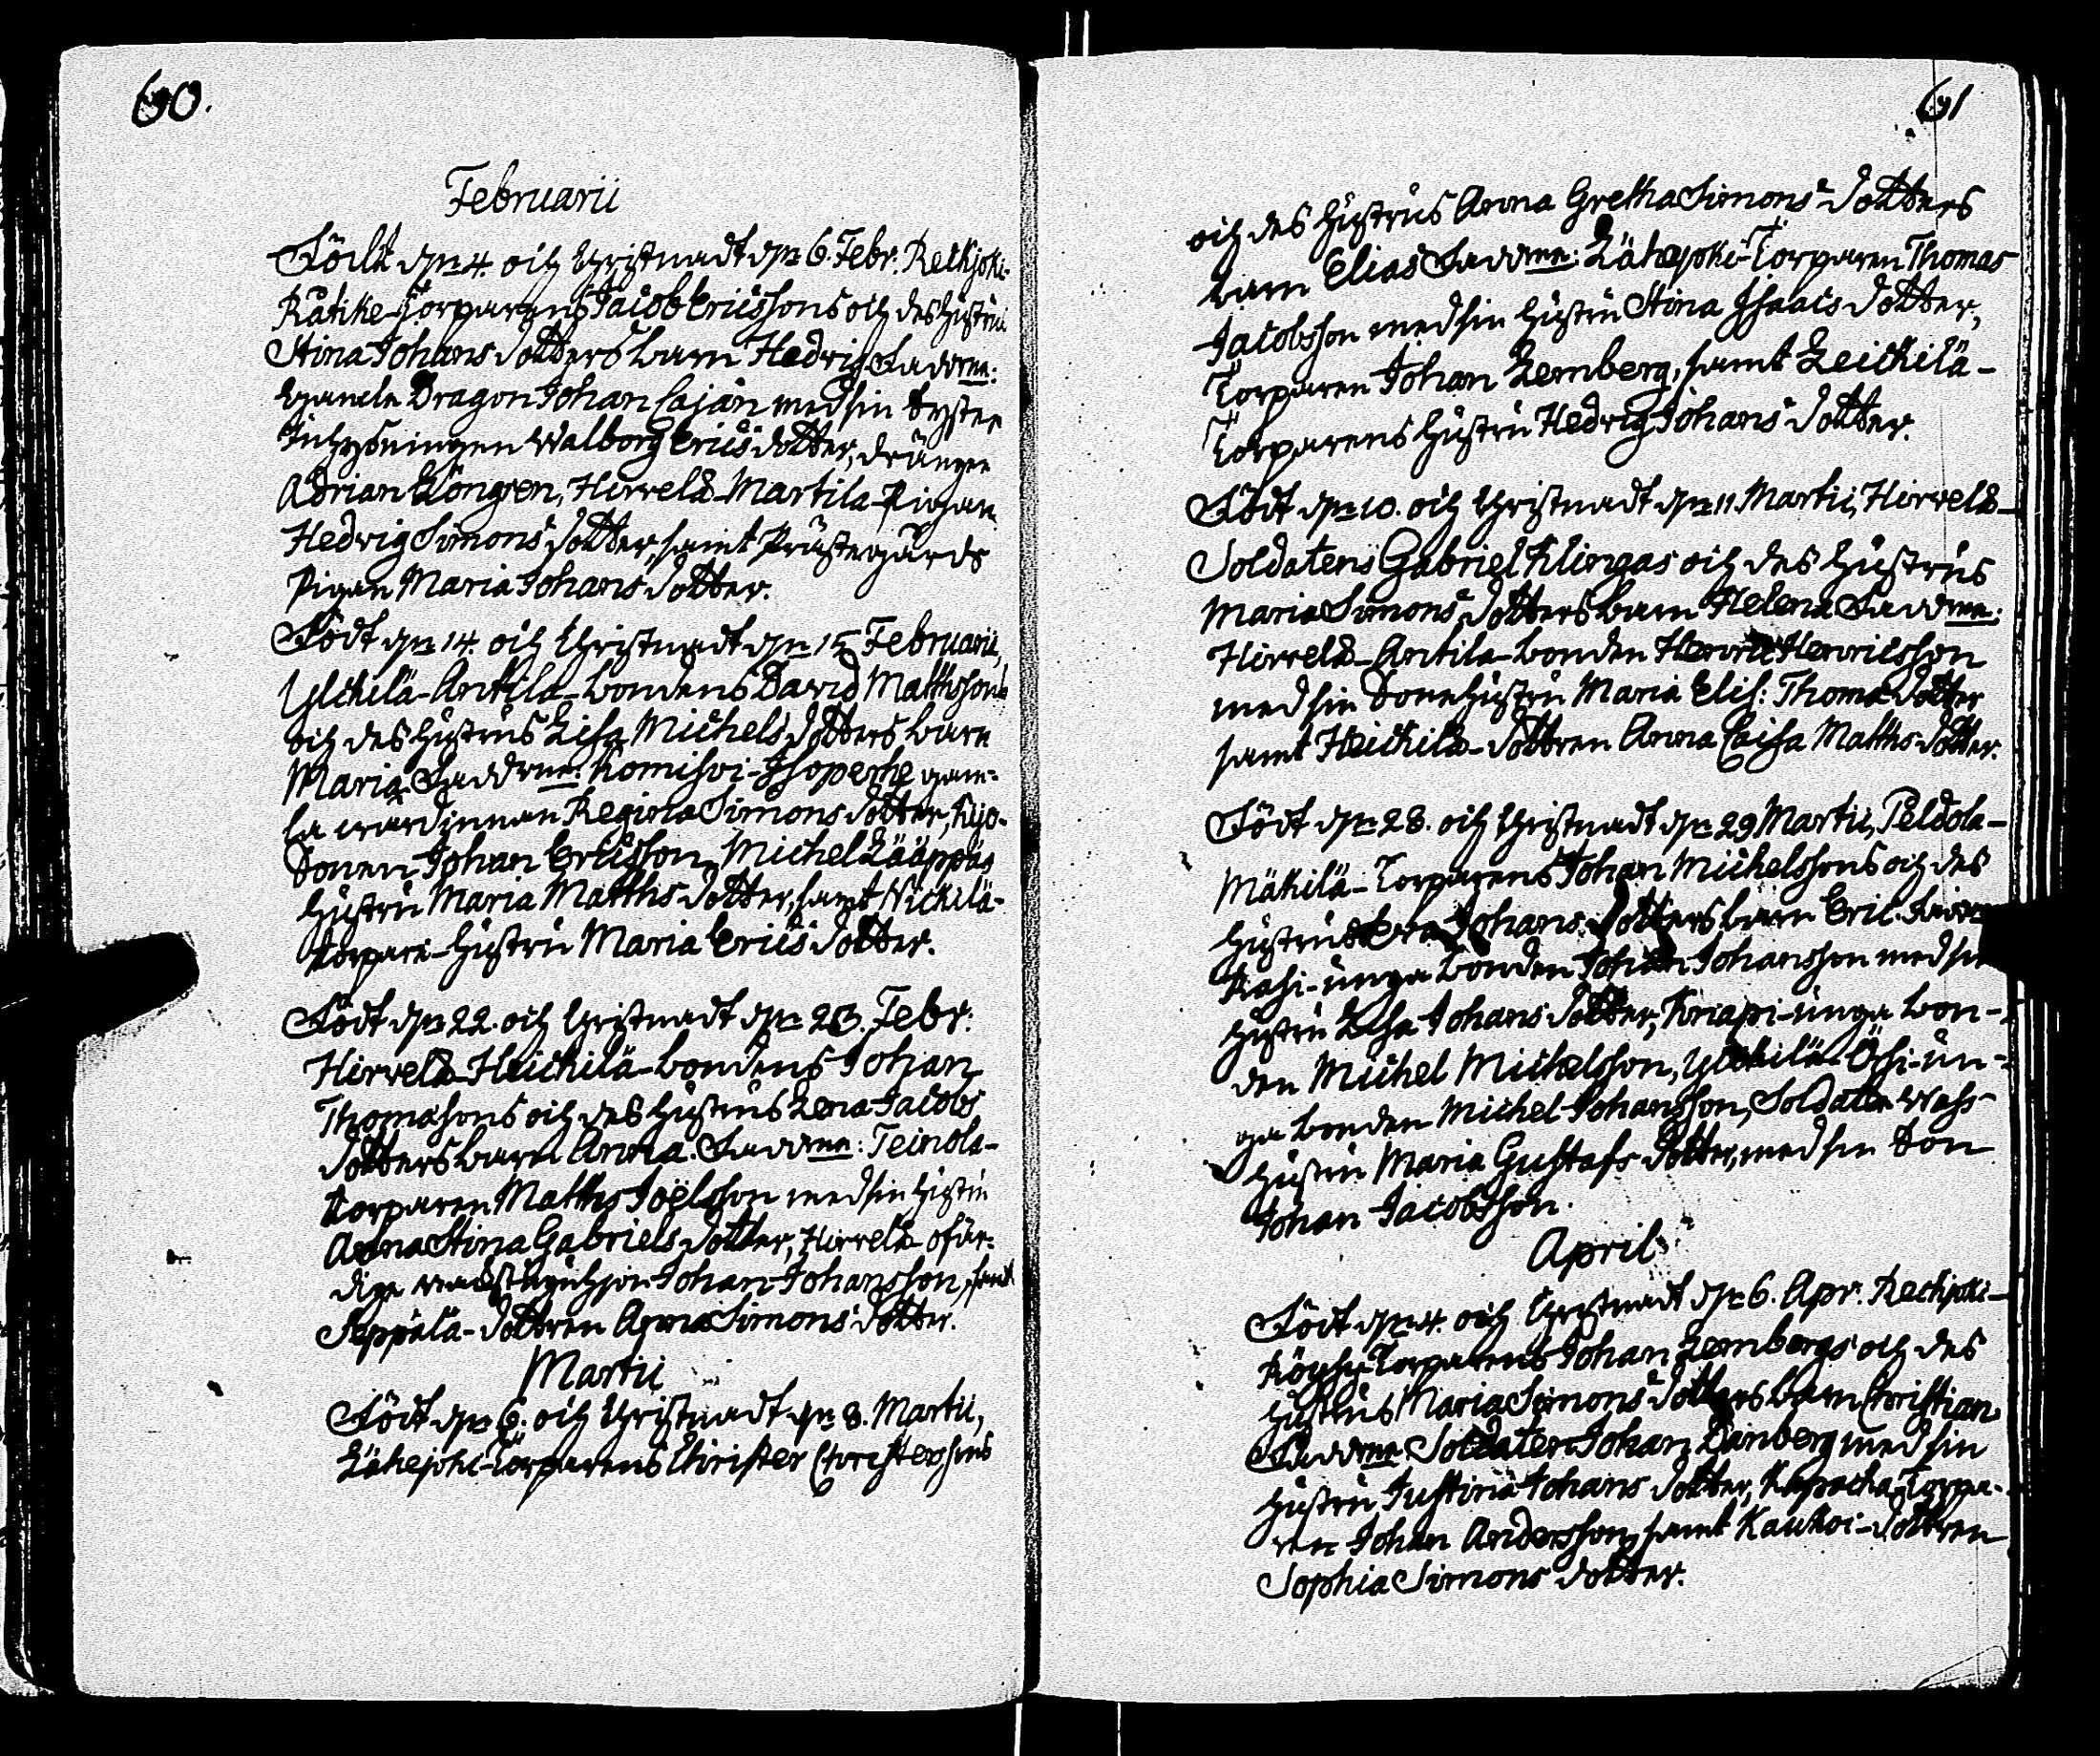 60.
Februarii
Födt den 4. och Christnadt den 6. Febr. Reckjoki-
Rätike-Torparens Jacob Ericssons och des hustrus
Stina Johans Dotters barn Hedvig. Faddrar:
Dragon Johan Cajan med sin Syster
Inhysningen Walborg Erics dotter, drängen
Adrian Löngren, Hirvelä-Martila-Pigan
Hedvig Simons Dotter, samt Prästegårds
Pigan Maria Johans Dotter.
Födt den 14. och Christnadt den 15 Februarii,
Ylckilä-Antila-bondens David Matthssons
och des hustrus Lisa Michels Dotters barn
Maria. Faddrar: Komisvi-Isoperhe gam-
la wärdinnan Regina Simons Dotter,
Sonen Johan Ericsson, Michel Lääppäs
hustru Maria Matths Dotter, samt Nickilä-
torpare-hustru Maria Erics Dotter.
Födt den 22. och Christnadt den 23. Febr.
Hirvelä-Heickilä-bondens Johan
Thomasons och des hustrus Lena Jacobs
Dotters barn Anna. Faddrar: Teinola-
torparen Matths Joëlsson med sin hustru
Anna Stina Gabriels Dotter, Hirvelä ofär-
dige Johan Johansson, samt
Seppälä-Dottren Anna Simons Dotter.
Martii
Födt den 6. och Christnadt den 8. Martii,
Lähejoki-Torparens Christer Christerssons
61
och des hustrus Anna Gretha Simons Dotters
barn Elias Faddrar: Lähejoki-Torparen Thomas
Jacobsson med sin hustru Stina Isaacs Dotter,
Torparen Johan Lemberg, samt Leickilä-
Torparens hustru Hedvig Johans Dotter.
Födt den 10. och Christnadt den 11. Martii, Hirvelä-
Soldatens Gabriel Klingas och des hustrus
Maria Simons Dotters barn Helena Faddrar:
Hirvelä-Antila-bonden Henric Henricsson
med sin Sonehustru Maria Elis: Thomæ Dotter
samt Heickilä-Dottren Anna Caisa Matths Dotter.
Födt den 28. och Christnadt den 29 Martii, Peldola-
Mäkilä-Torparens Johan Michelssons och des
hustrus Eva Johans Dotters barn Eric. Faddrar
Kasi-unga bonden Johan Johansson med sin
hustru Lisa Johans Dotter, Knapi-unga bon-
den Michel Michelsson, Ylckilä-Össi-un-
ga bonden Michel Johansson, Soldaten Wass-
hustru Maria Gustafs Dotter, med sin Son
Johan Jacobsson.
April
Födt den 4. och Christnadt den 6. Apr. Reckjoki-
Röyhy-Torparens Johan Lembergs och des
hustrus Maria Simons Dotters barn Christian
Faddrar Soldaten Johan Danberg med sin
hustru Justina Johans Dotter, Torpa-
ren Johan Andersson, samt Kaukoi-Dottren
Sophia Simons Dotter.